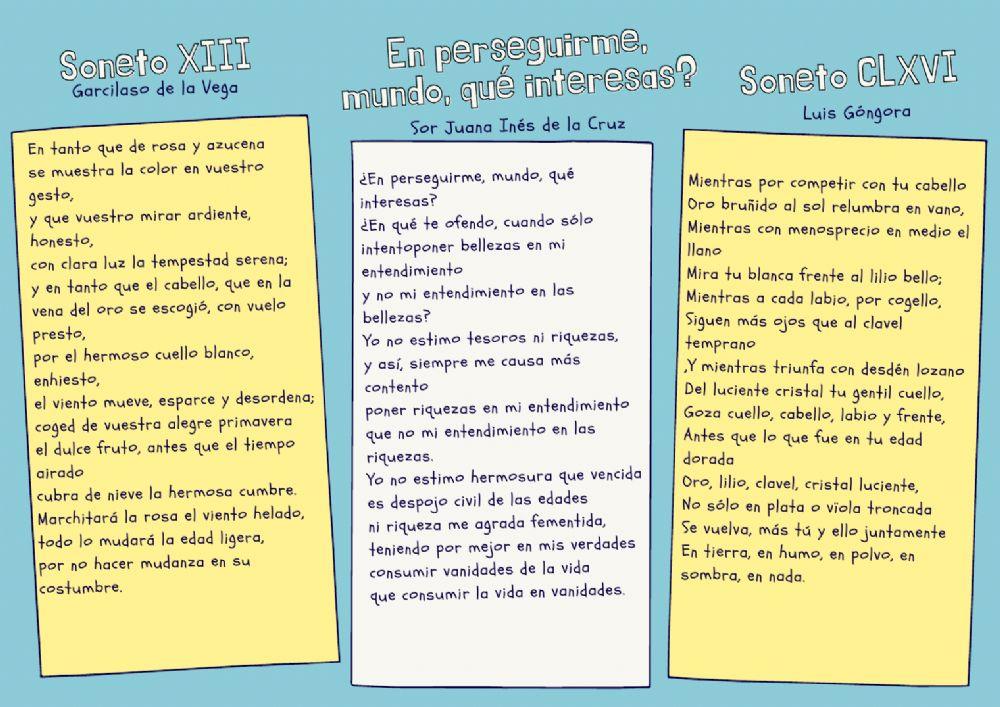 Soneto XIII
Garcilaso de la Vega
En tanto que de rosa y azucena
se muestra la color en vuestro
gesto,
y que vuestro mirar ardiente,
honesto,
con clara luz la tempestad serena;
y en tanto que el cabello, que en la
vena del oro se escogió, con vuelo
presto,
por el hermoso cuello blanco,
enhiesto,
el viento mueve, esparce y desordena;
coged de vuestra alegre primavera
el dulce fruto, antes que el tiempo
airado
cubra de nieve la hermosa cumbre.
Marchitará la rosa el viento helado,
todo lo mudará la edad ligera,
por no hacer mudanza en su
costumbre.
En perseguirme,
mundo, qué interesas?
Sor Juana Inés de la Cruz
¿En perseguirme, mundo, qué
interesas?
¿En qué te ofendo, cuando sólo
intentoponer bellezas en mi
entendimiento
y no mi entendimiento en las
bellezas?
Yo no estimo tesoros ni riquezas,
y así, siempre me causa más
contento
poner riquezas en mi entendimiento
que no mi entendimiento en las
riquezas.
Yo no estimo hermosura que vencida
es despojo civil de las edades
ni riqueza me agrada fementida,
teniendo por mejor en mis verdades
consumir vanidades de la vida
que consumir la vida en vanidades.
Soneto CLXVI
Luis Góngora
Mientras por competir con tu cabello
Oro bruñido al sol relumbra en vano,
Mientras con menosprecio en medio el
llano
Mira tu blanca frente al lilio bello;
Mientras a cada labio, por cogello,
Siguen más ojos que al clavel
temprano
,Y mientras triunfa con desdén lozano
Del luciente cristal tu gentil cuello,
Goza cuello, cabello, labio y frente,
Antes que lo que fue en tu edad
dorada
Oro, lilio, clavel, cristal luciente,
No sólo en plata o vïola troncada
Se vuelva, más tú y ello juntamente
En tierra, en humo, en polvo, en
sombra, en nada.